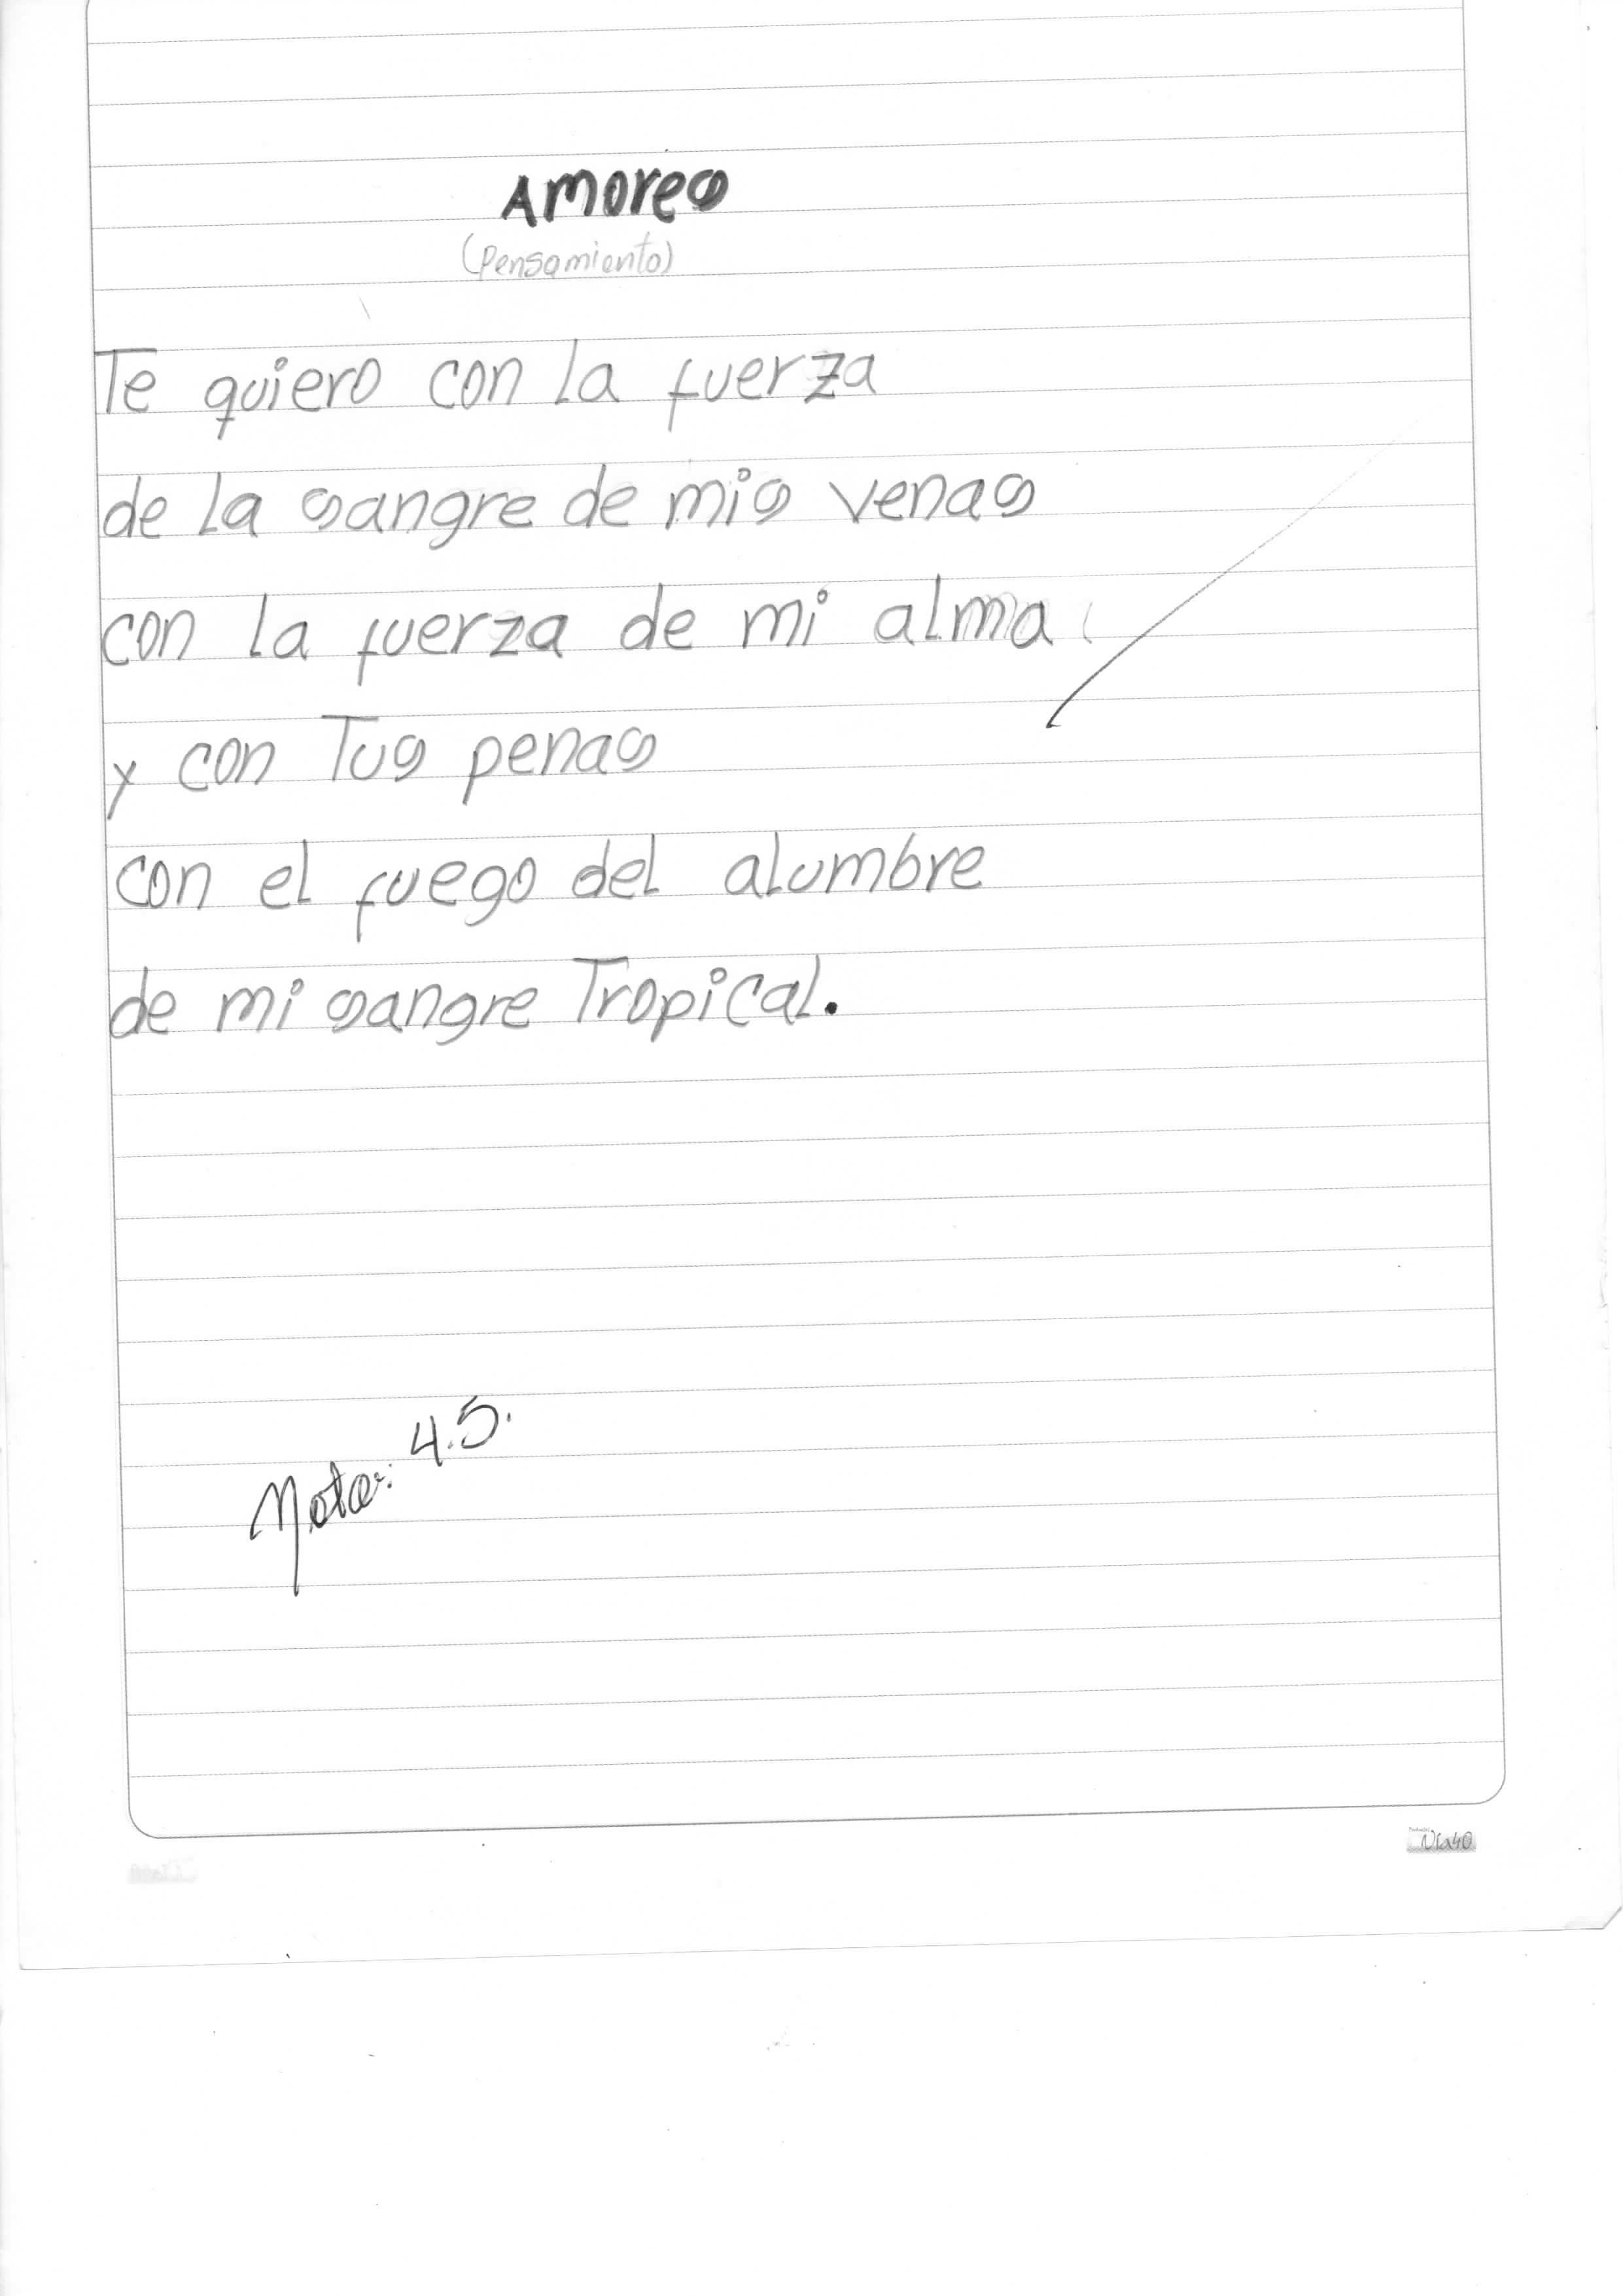 Amores
(Pensamiento)
Te quiero con la fuerza
de la sangre de mis venas
con la fuerza de mi alma
y con Tus penas
con el fuego del alumbre
de mi sangre Tropical.
Nota: 4.5.
Vía40